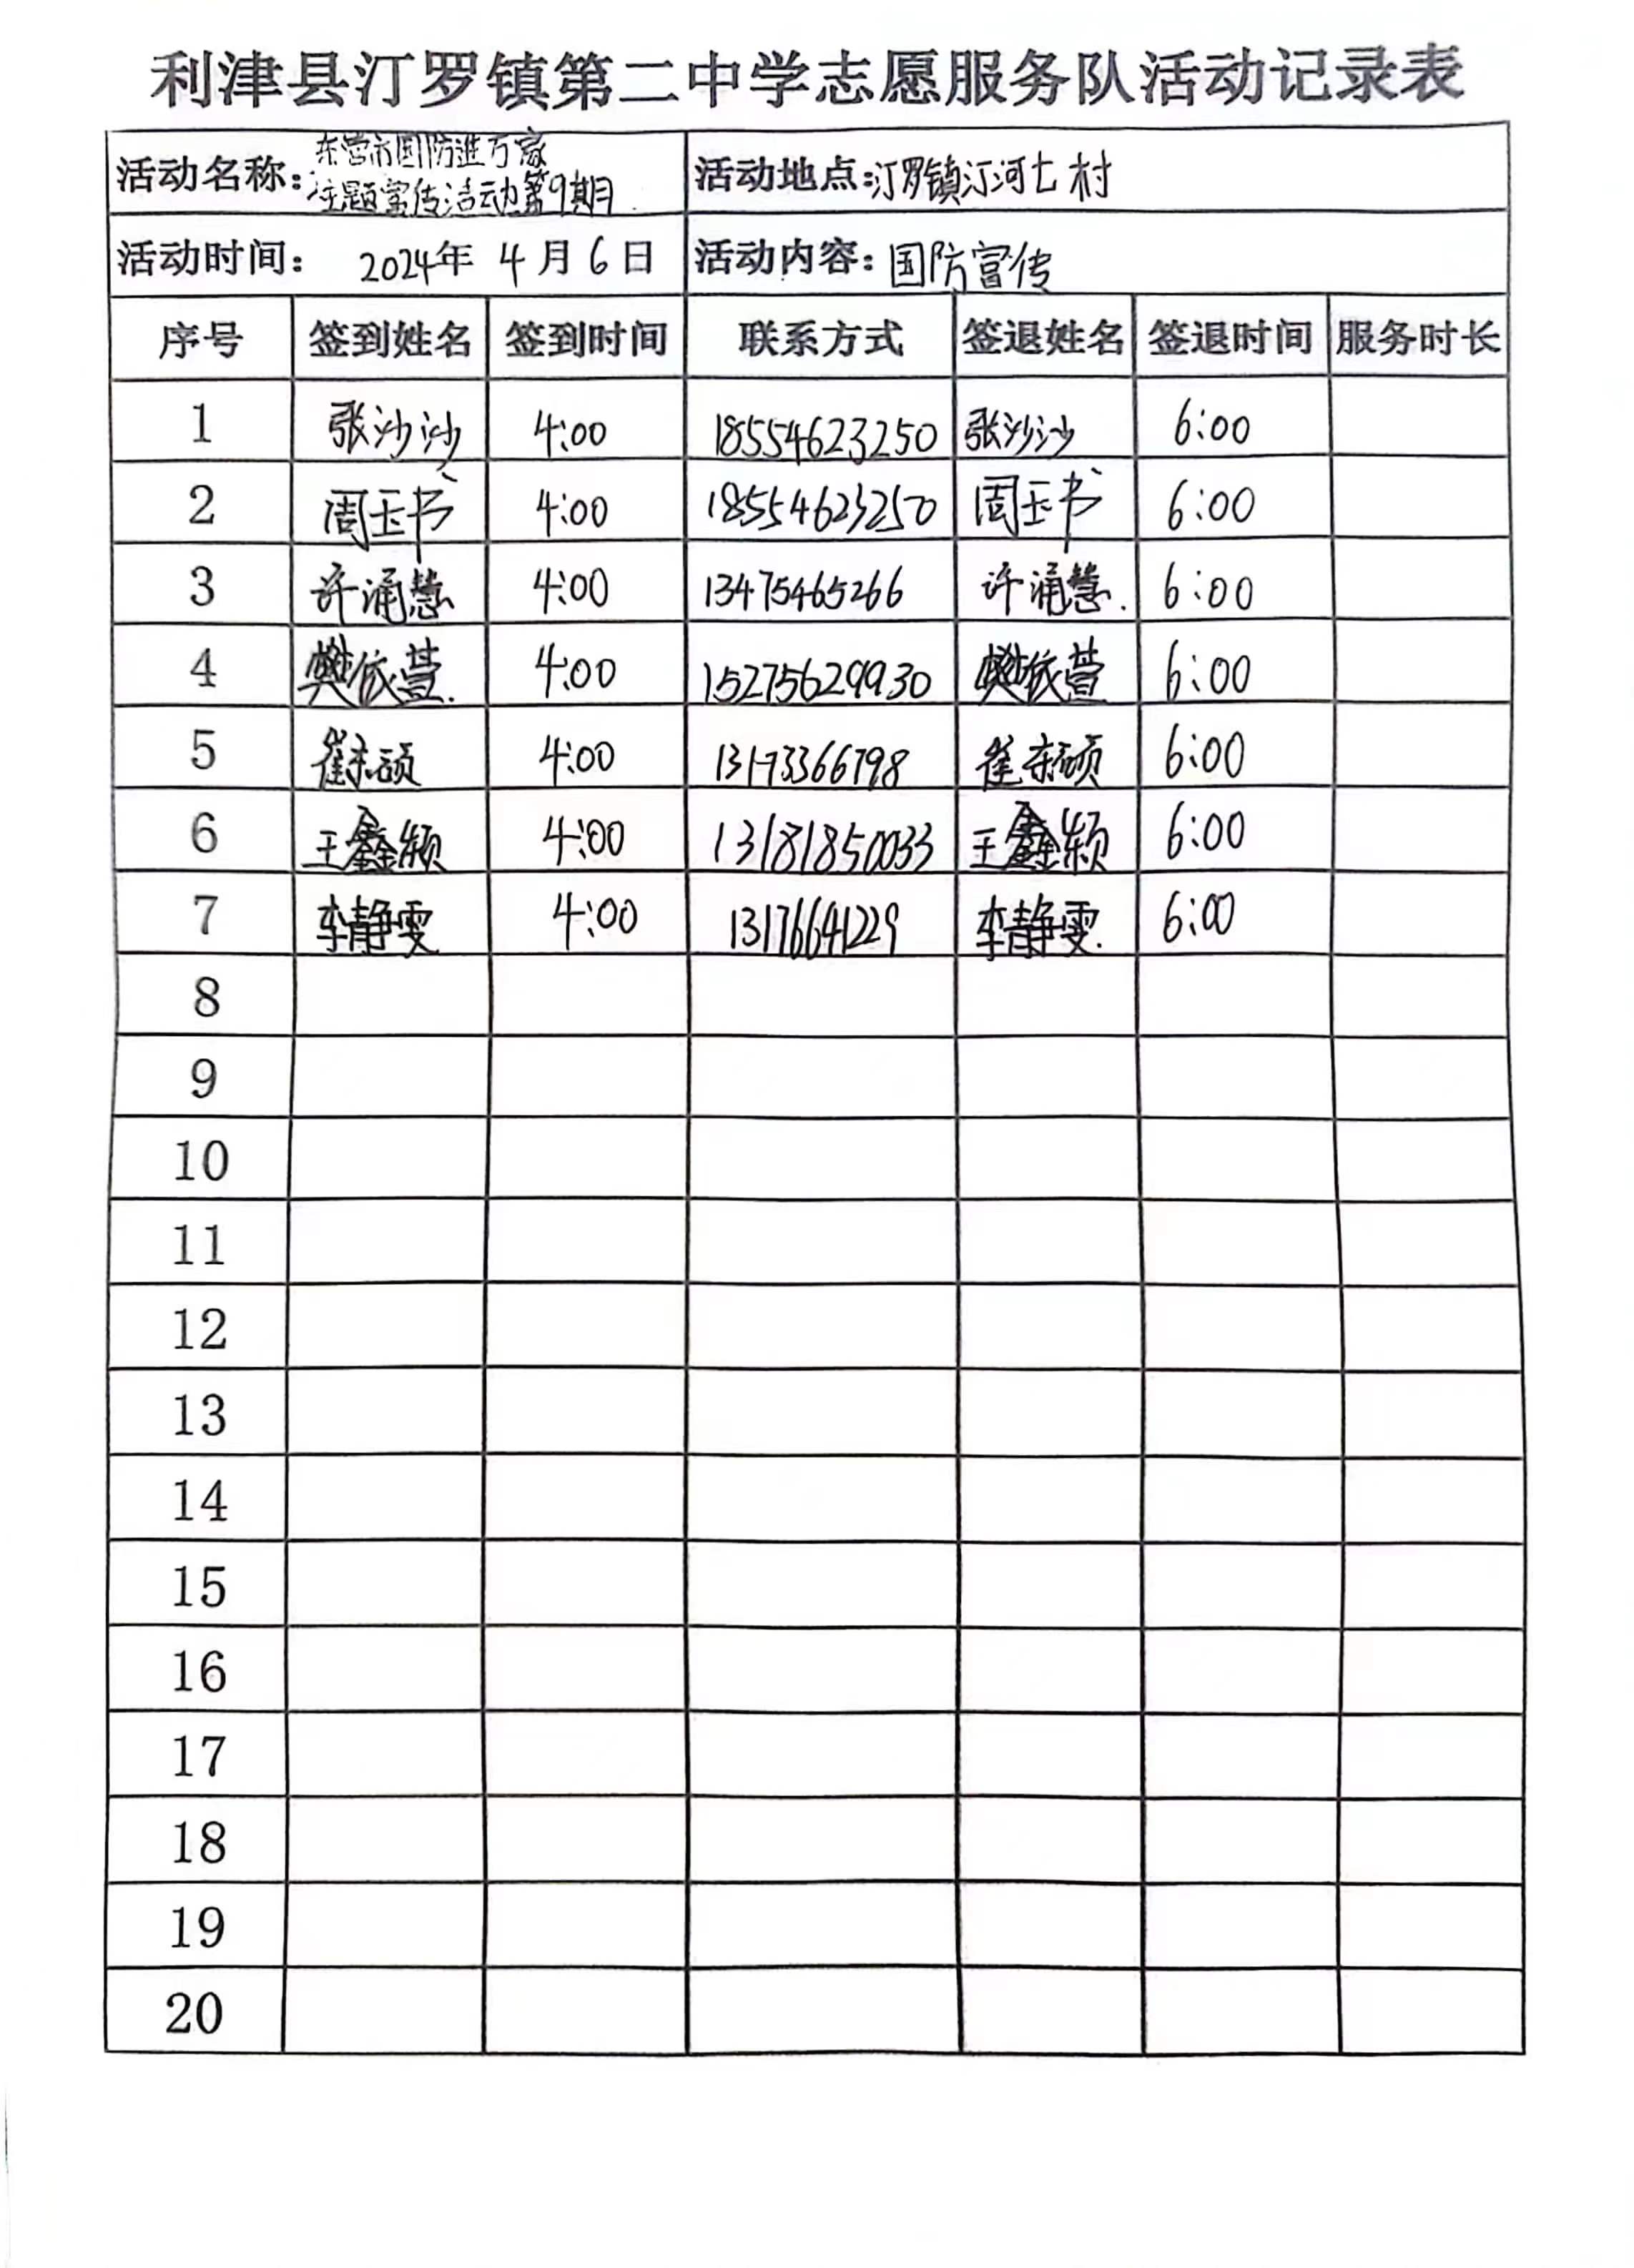 利津县汀罗镇第二中学志愿服务队活动记录表
活动名称: 东营市国防进万家
主题宣传活动第9期 活动地点:汀罗镇汀河七村
活动时间: 2024年 4月6日 活动内容: 国防宣传
序号 签到姓名 签到时间 联系方式 签退姓名 签退时间 服务时长
1 张沙沙 4:00 18554623250 张沙沙 6:00
2 周玉书 4:00 18554623250 周玉书 6:00
3 许涌慧 4:00 13475465266 许涌慧. 6:00
4 樊依萱. 4:00 15275629930 樊依萱 6:00
5 崔东硕 4:00 13173366798 崔东硕 6:00
6 王鑫颖 4:00 13181850033 王鑫颖 6:00
7 李静雯 4:00 13176641229 李静雯. 6:00
8
9
10
11
12
13
14
15
16
17
18
19
20